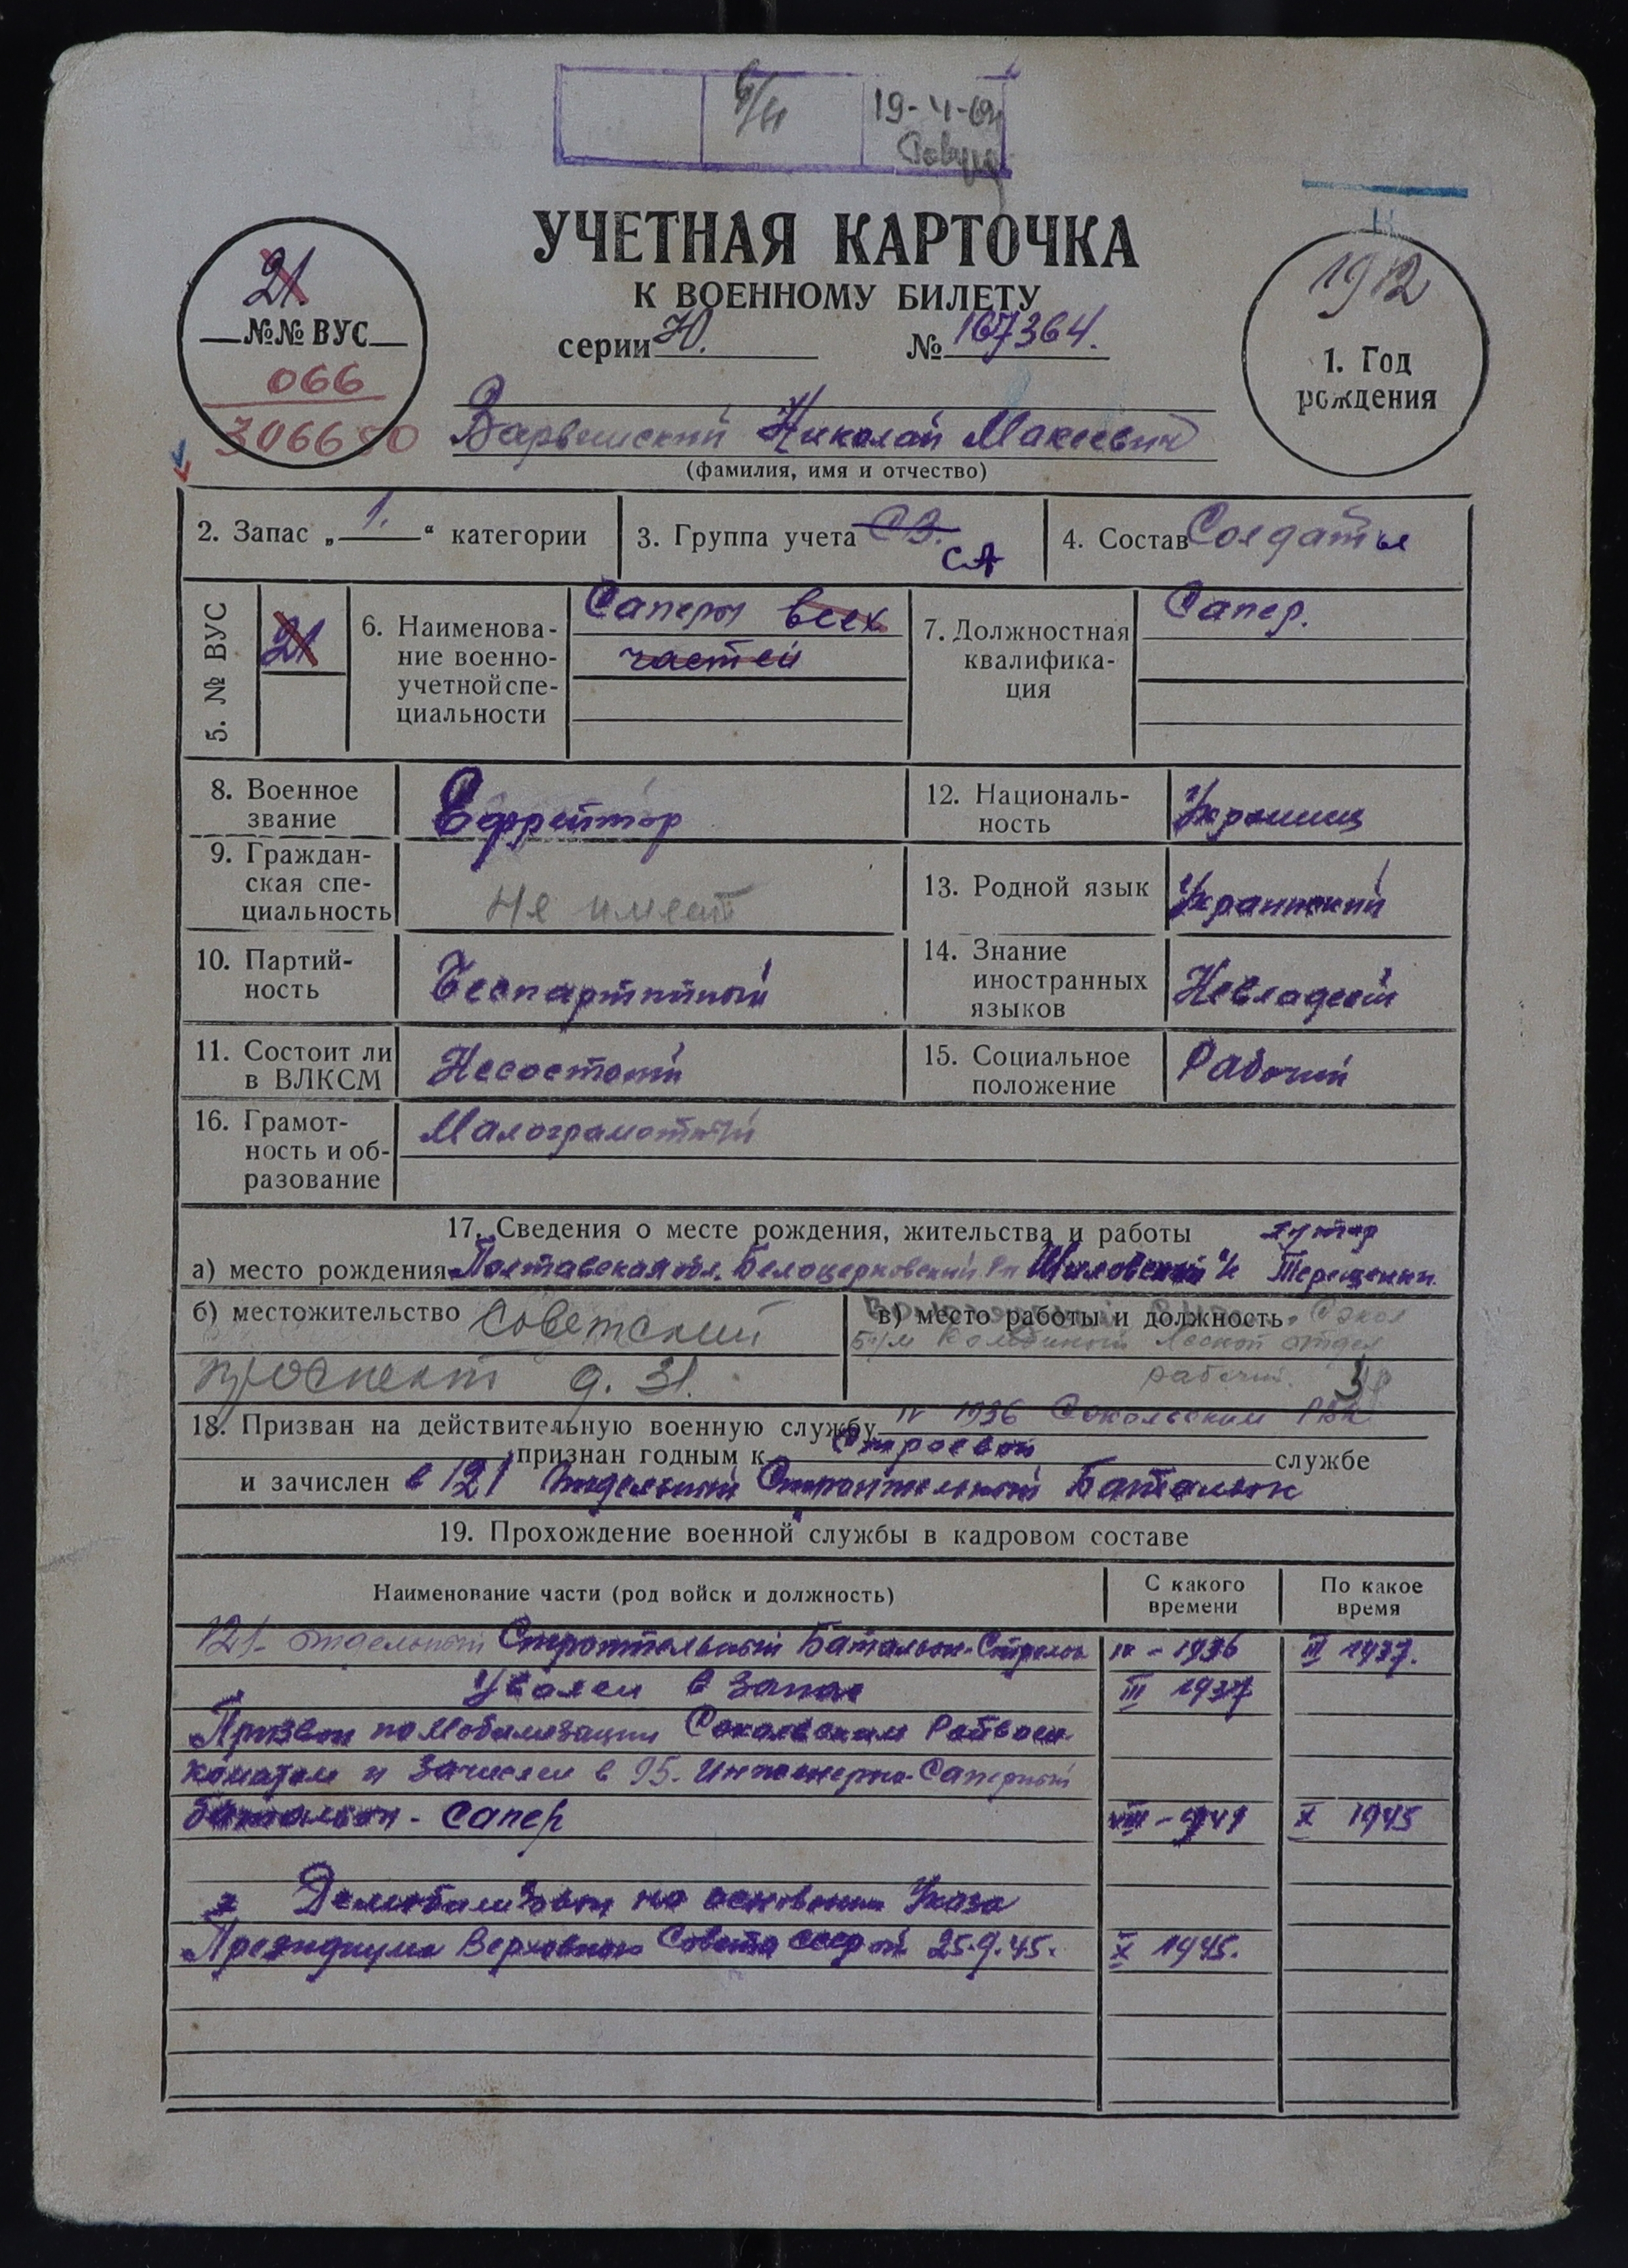 6/II 19-4-62
УЧЕТНАЯ КАРТОЧКА
К ВОЕННОМУ БИЛЕТУ
серии Ю. № 167364.
21
№№ ВУС
066
306650
1912
1. Год
рождения
Николай Макеевич
(фамилия, имя и отчество)
2. Запас „ 1. “ категории
3. Группа учета СА
4. Состав Солдаты
5. № ВУС
21
6. Наименова-
ние военно-
учетной спе-
циальности
Саперы всех
частей
7. Должностная
квалифика-
ция
Сапер.
8. Военное
звание
Ефрейтор
12. Националь-
ность
Украинец
9. Граждан-
ская спе-
циальность
Не имеет
13. Родной язык
Украинский
10. Партий-
ность
Беспартийный
14. Знание
иностранных
языков
Невладеет
11. Состоит ли
в ВЛКСМ
Несостоит
15. Социальное
положение
Рабочий
16. Грамот-
ность и об-
разование
Малограмотный
17. Сведения о месте рождения, жительства и работы хутор
а) место рождения Полтавская обл. Белоцерковский р-н Терещенки
б) местожительство Советский
проспект д. 31.
в) место работы и должность Сокол
Лесной отдел
рабочий.
18. Призван на действительную военную службу IV 1936 Сокольским РВК
признан годным к строевой службе
и зачислен в 121 Отдельный Строительный Батальон
19. Прохождение военной службы в кадровом составе
Наименование части (род войск и должность)
С какого
времени
По какое
время
121 - отдельный Строительный Батальон - Стрелок IV - 1936 III 1937.
Уволен в запас III 1937
Призван по Мобилизации Сокольским Райвоен-
коматом и зачислен в 95. Инженерно-Саперный
батальон - сапер VIII - 1941 X 1945
Демобилизован на основании Указа
Президиума Верховного Совета СССР от 25.9.45. X 1945.